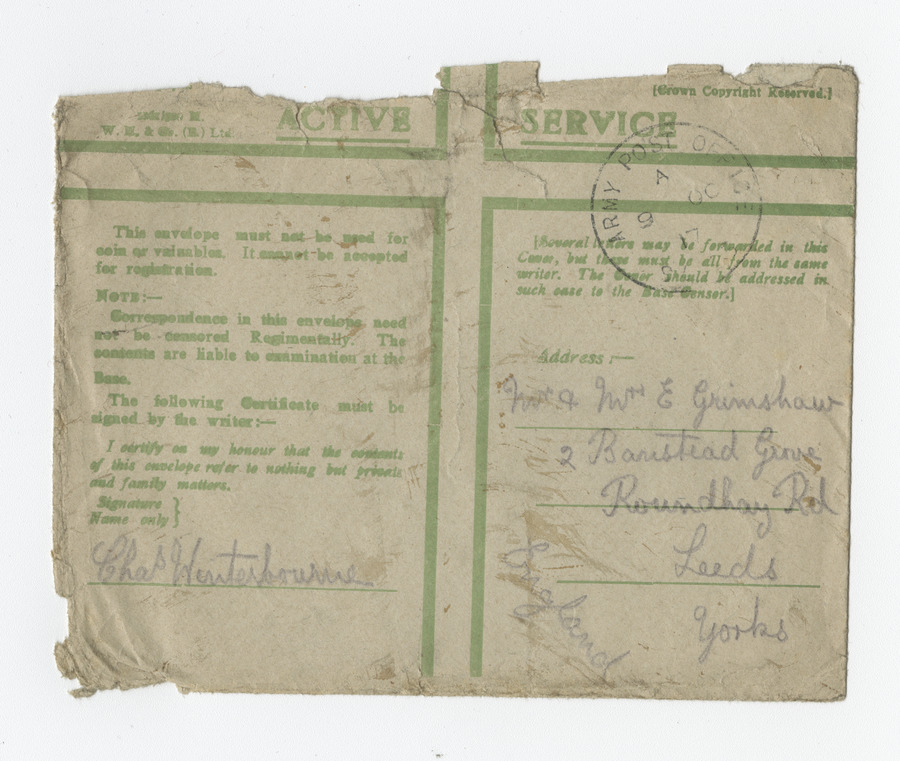 [Crown Copyright Reserved.]
W. H. & Co. (E.) Ltd.
ACTIVE SERVICE
This envelope must not be used for
coin or valuables. It cannot be accepted
for registration.
NOTE:—
Correspondence in this envelope need
not be censored Regimentally. The
contents are liable to examination at the
Base.
The following Certificate must be
signed by the writer:—
I certify on my honour that the contents
of this envelope refer to nothing but private
and family matters.
Signature
Name only }
Chas Winterbourne
ARMY POST OFFICE
OC
17
[Several letters may be forwarded in this
Cover, but these must be all from the same
writer. The Cover should be addressed in
such case to the Base Censor.]
Address:—
Mr & Mrs E Grimshaw
2 Banstead Grove
Roundhay Rd
Leeds
Yorks
England